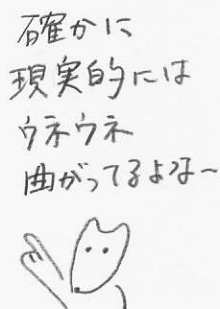 確かに
現実的には
ウネウネ
曲がってるよな〜